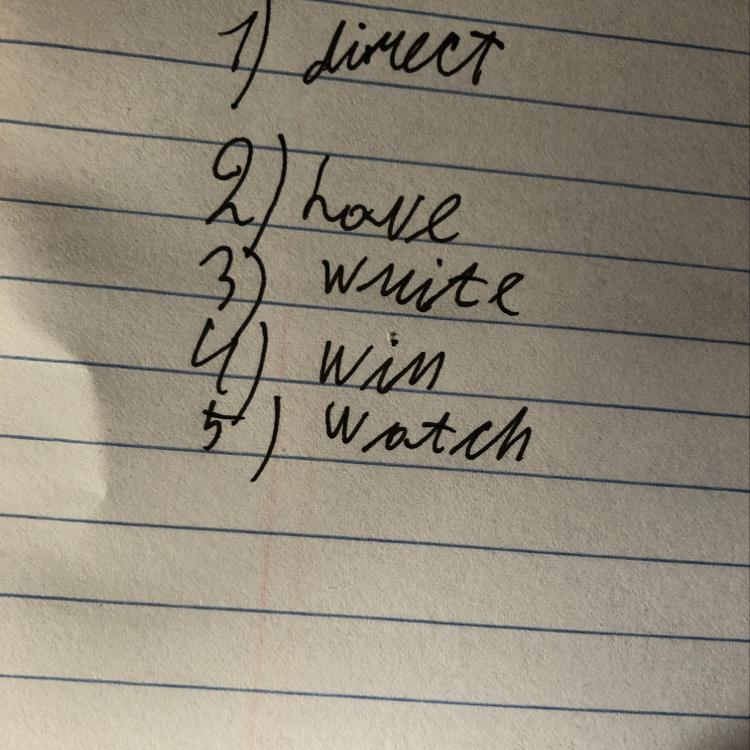 1) direct
2) have
3) write
4) win
5) watch